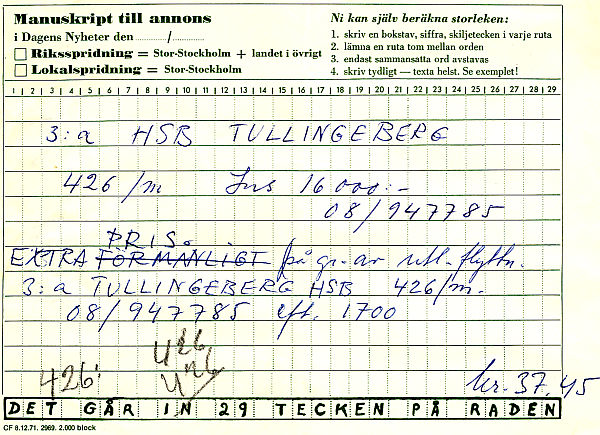 Manuskript till annons
i Dagens Nyheter den ............/............
Riksspridning = Stor-Stockholm + landet i övrigt
Lokalspridning = Stor-Stockholm
Ni kan själv beräkna storleken:
1. skriv en bokstav, siffra, skiljetecken i varje ruta
2. lämna en ruta tom mellan orden
3. endast sammansatta ord avstavas
4. skriv tydligt — texta helst. Se exemplet!
1 2 3 4 5 6 7 8 9 10 11 12 13 14 15 16 17 18 19 20 21 22 23 24 25 26 27 28 29
3:a HSB TULLINGEBERG
426/m Ins 16000:-
08/947785
PRIS.
EXTRA FÖRMÅNLIGT på gr. av utl. flyttn.
3:a TULLINGEBERG HSB 426/m.
08/947785 eft. 1700
426
426
426:
kr. 37,45
DET GÅR IN 29 TECKEN PÅ RADEN
CF 8.12.71. 2969. 2.000 block